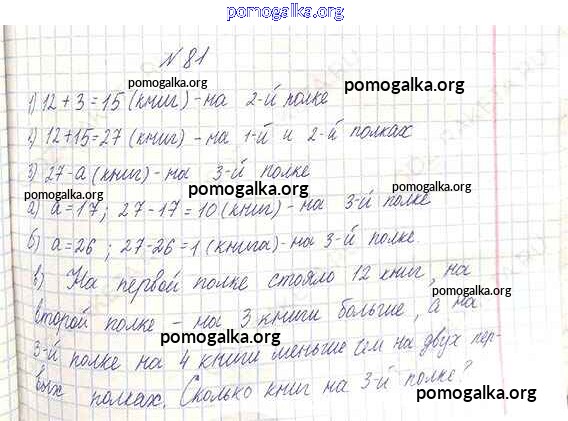 pomogalka.org
№ 81
pomogalka.org
1) 12 + 3 = 15 (книг) - на 2-й полке
pomogalka.org
2) 12+15=27 (книг) - на 1-й и 2-й полках
pomogalka.org
3) 27-а (книг) - на 3-й полке
pomogalka.org
pomogalka.org
а) а=17; 27-17=10 (книг) - на 3-й полке
б) а=26; 27-26=1 (книга) - на 3-й полке.
pomogalka.org
в) На первой полке стояло 12 книг, на
pomogalka.org
второй полке - на 3 книги больше, а на
pomogalka.org
3-й полке на 4 книги меньше чем на двух пер-
вых полках. Сколько книг на 3-й полке?
pomogalka.org
pomogalka.org